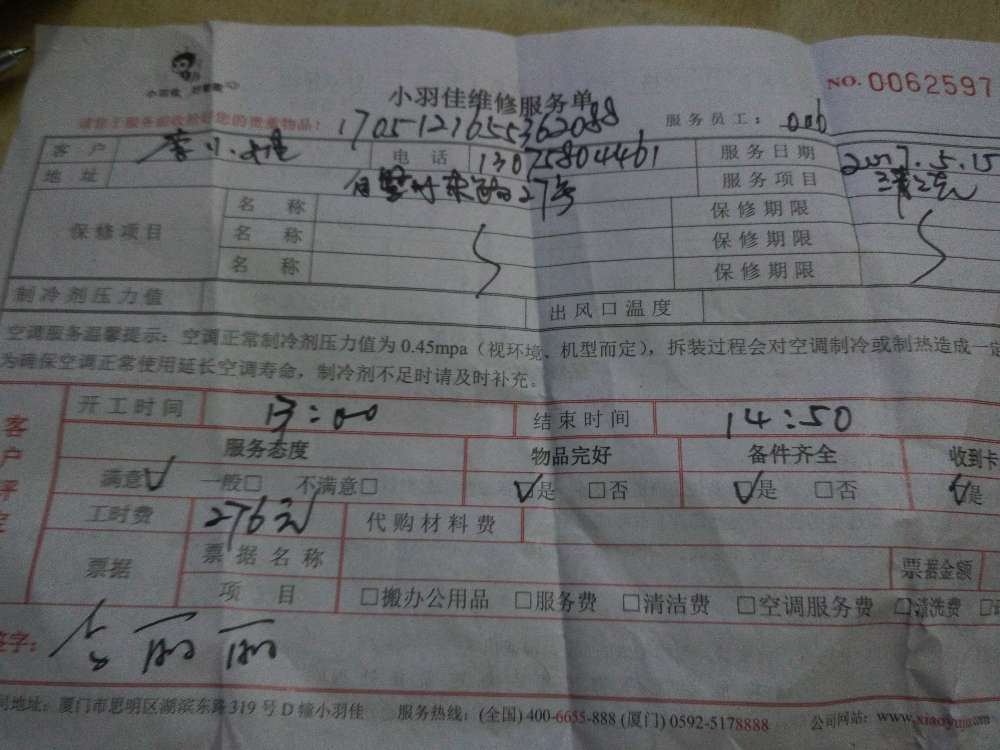 小羽佳
NO. 0062597
小羽佳维修服务单
1705121655362088
服务员工: 006
客户 电话 13075804461 服务日期 2017.5.15
地址 27号 服务项目
保修项目 名称 保修期限
名称 保修期限
名称 保修期限
制冷剂压力值 出风口温度
空调服务温馨提示: 空调正常制冷剂压力值为0.45mpa(视环境、机型而定), 拆装过程会对空调制冷或制热造成一定
为确保空调正常使用延长空调寿命, 制冷剂不足时请及时补充。
客户评定
开工时间 13:00 结束时间 14:50
服务态度 物品完好 备件齐全 收到卡
满意√ 一般□ 不满意□ √是 □否 √是 □否 √是
工时费 276元 代购材料费
票据 票据名称 票据金额
项目 □搬办公用品 □服务费 □清洁费 □空调服务费 □清洗费
签字: 丽丽
地址: 厦门市思明区湖滨东路319号D幢小羽佳 服务热线: (全国) 400-6655-888 (厦门) 0592-5178888 公司网站: www.xiaoyujia.com